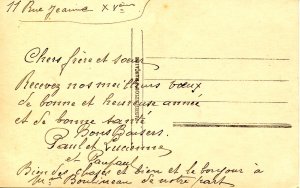 11 Rue Jeanne XVème
Chers frère et sœur
Recevez nos meilleurs vœux
de bonne et heureuse année
et de bonne santé
Bons Baisers
Paul et Lucienne
et
Bien des choses et bien et le bonjour à
Mr Boulineau de notre part